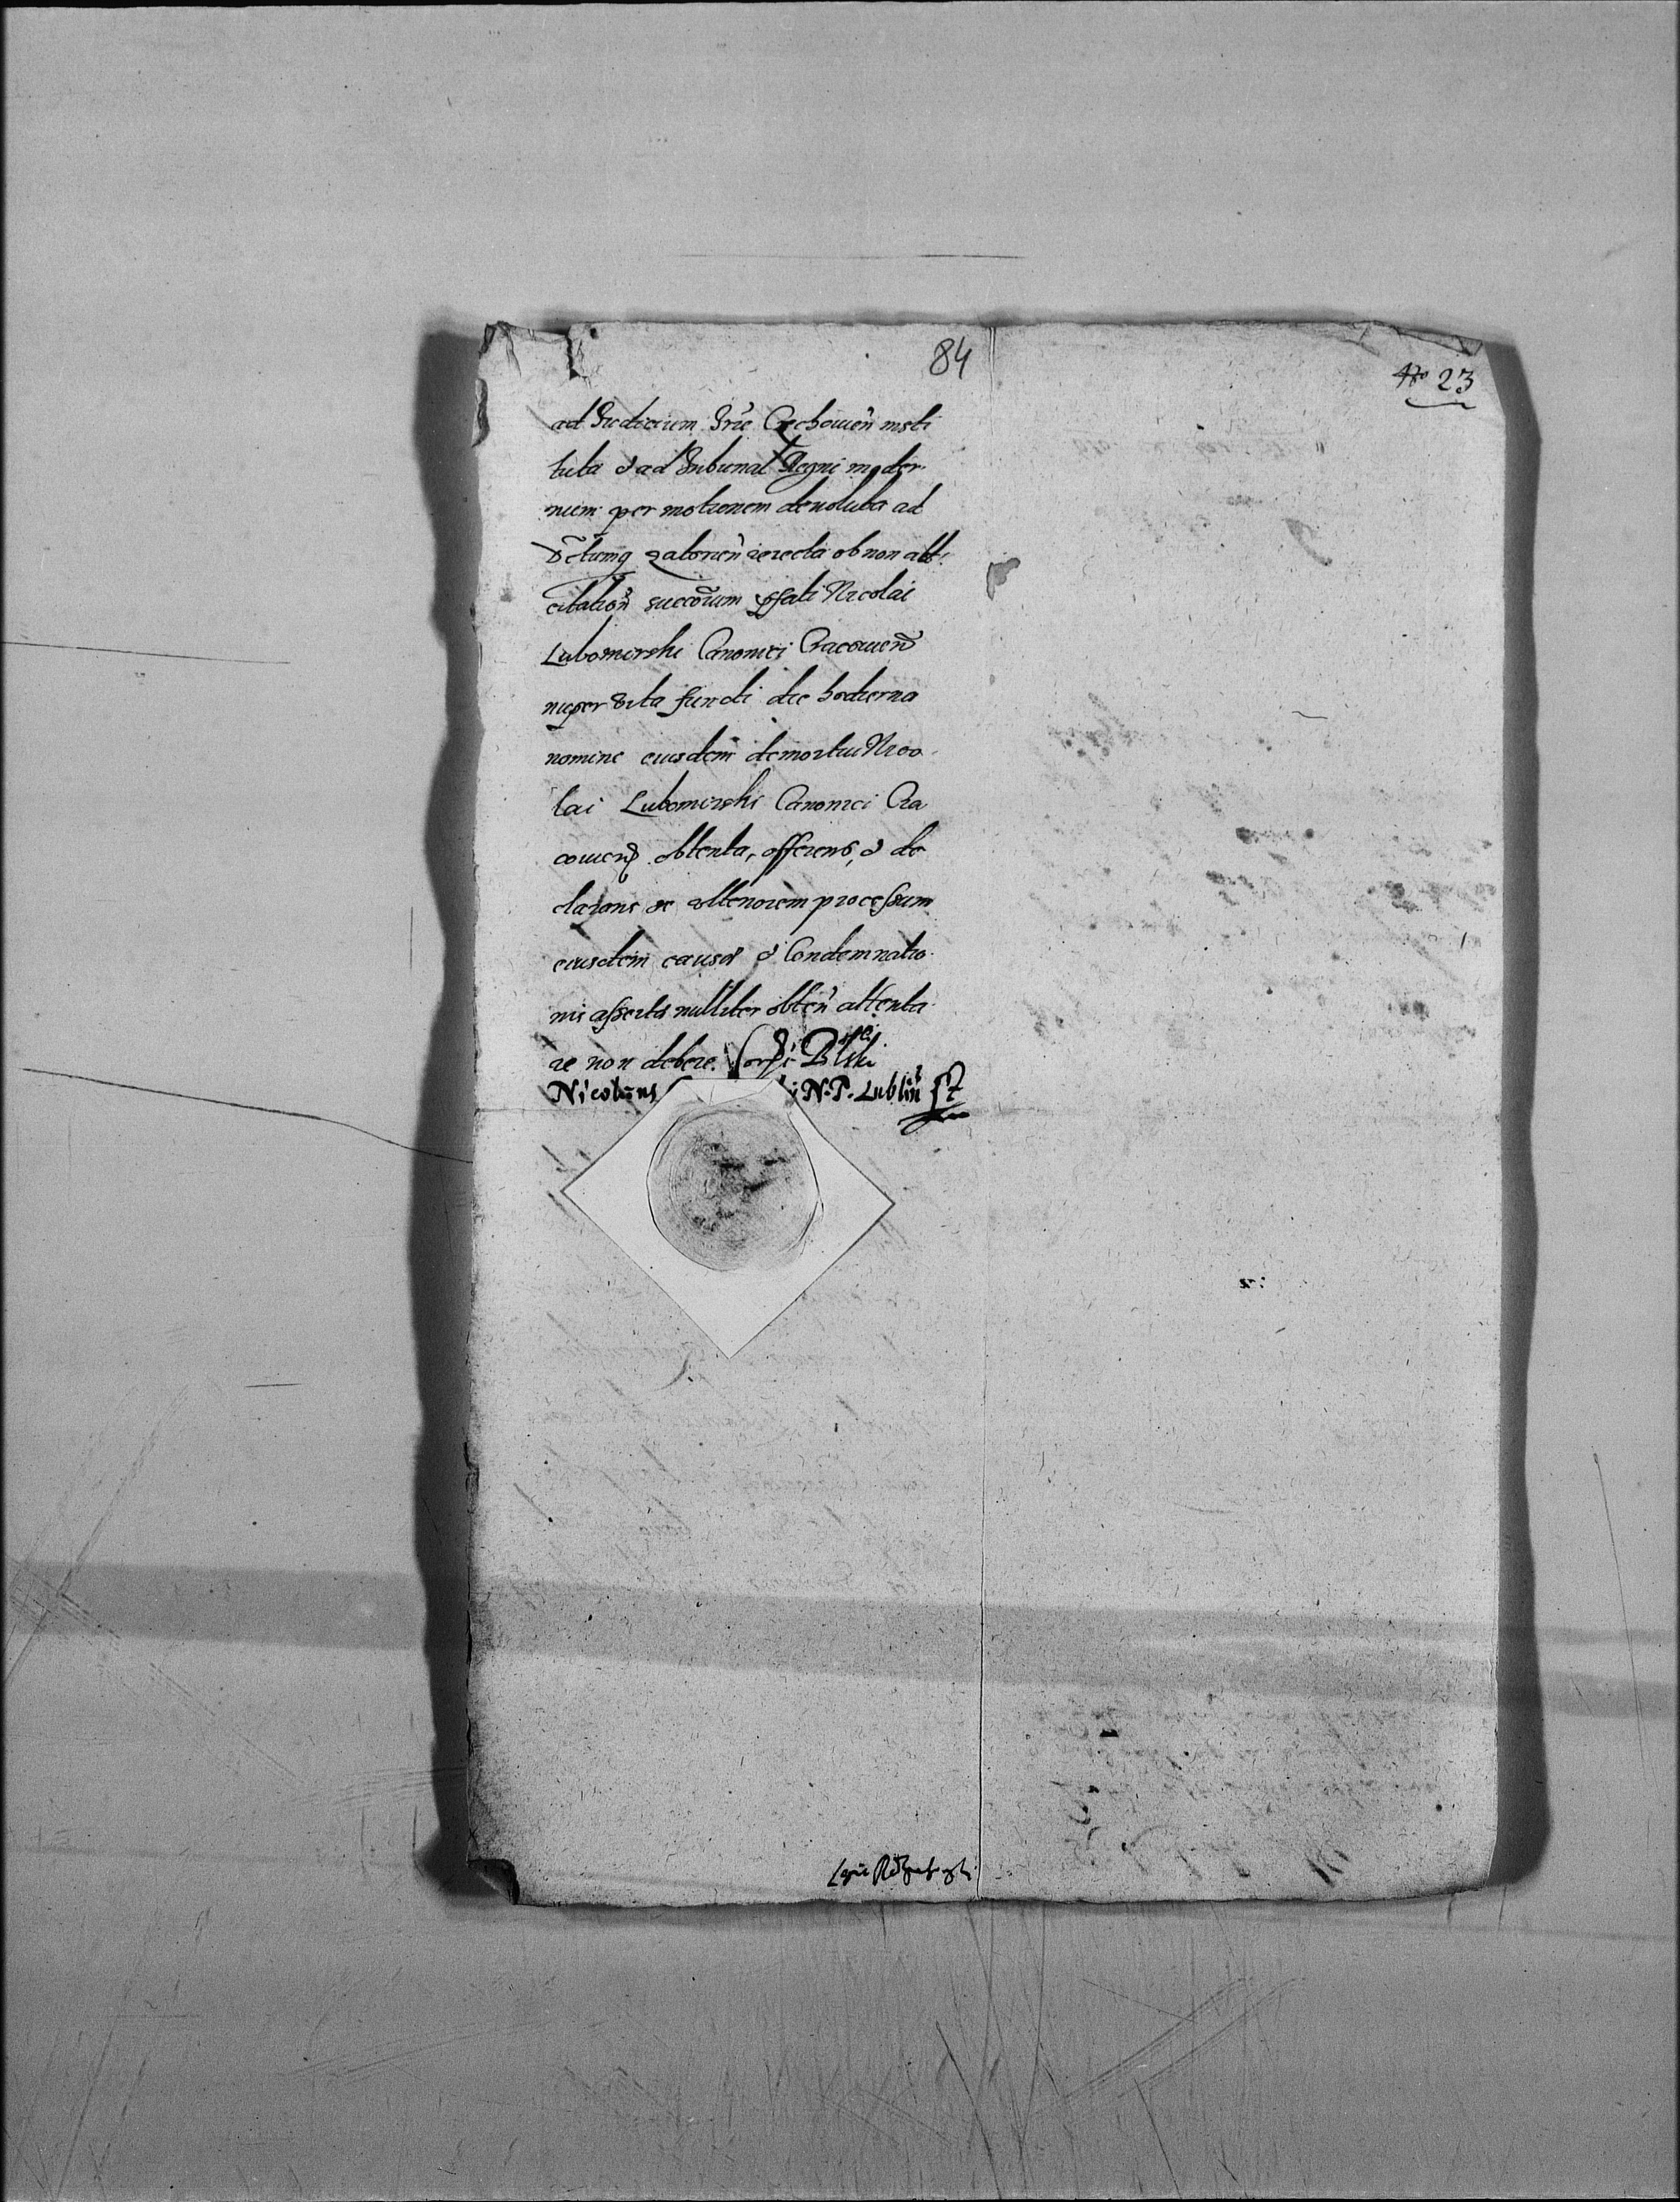 84
No 23
ad Judicium Trre Czchouien insti
tuta & ad Tribunal Regni moder
num per motionem deuoluta ad
zatorien reiecta ob non att
citation succorum pfati Nicolai
Lubomirski Canonici Cracouien
nuper vita functi die hodierna
nomine eiusdem demortui Nico
lai Lubomirski Canonici Cra
couien obtenta, offerens, & de
clarans se vltenorem processum
eiusdem causæ & Condemnatio
nis assertæ nulliter obten attenta
re non debere.
Nicolaus N. P. Lublin